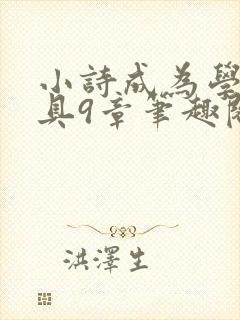 小詩成為學
具9章筆趣閣
洪澤生